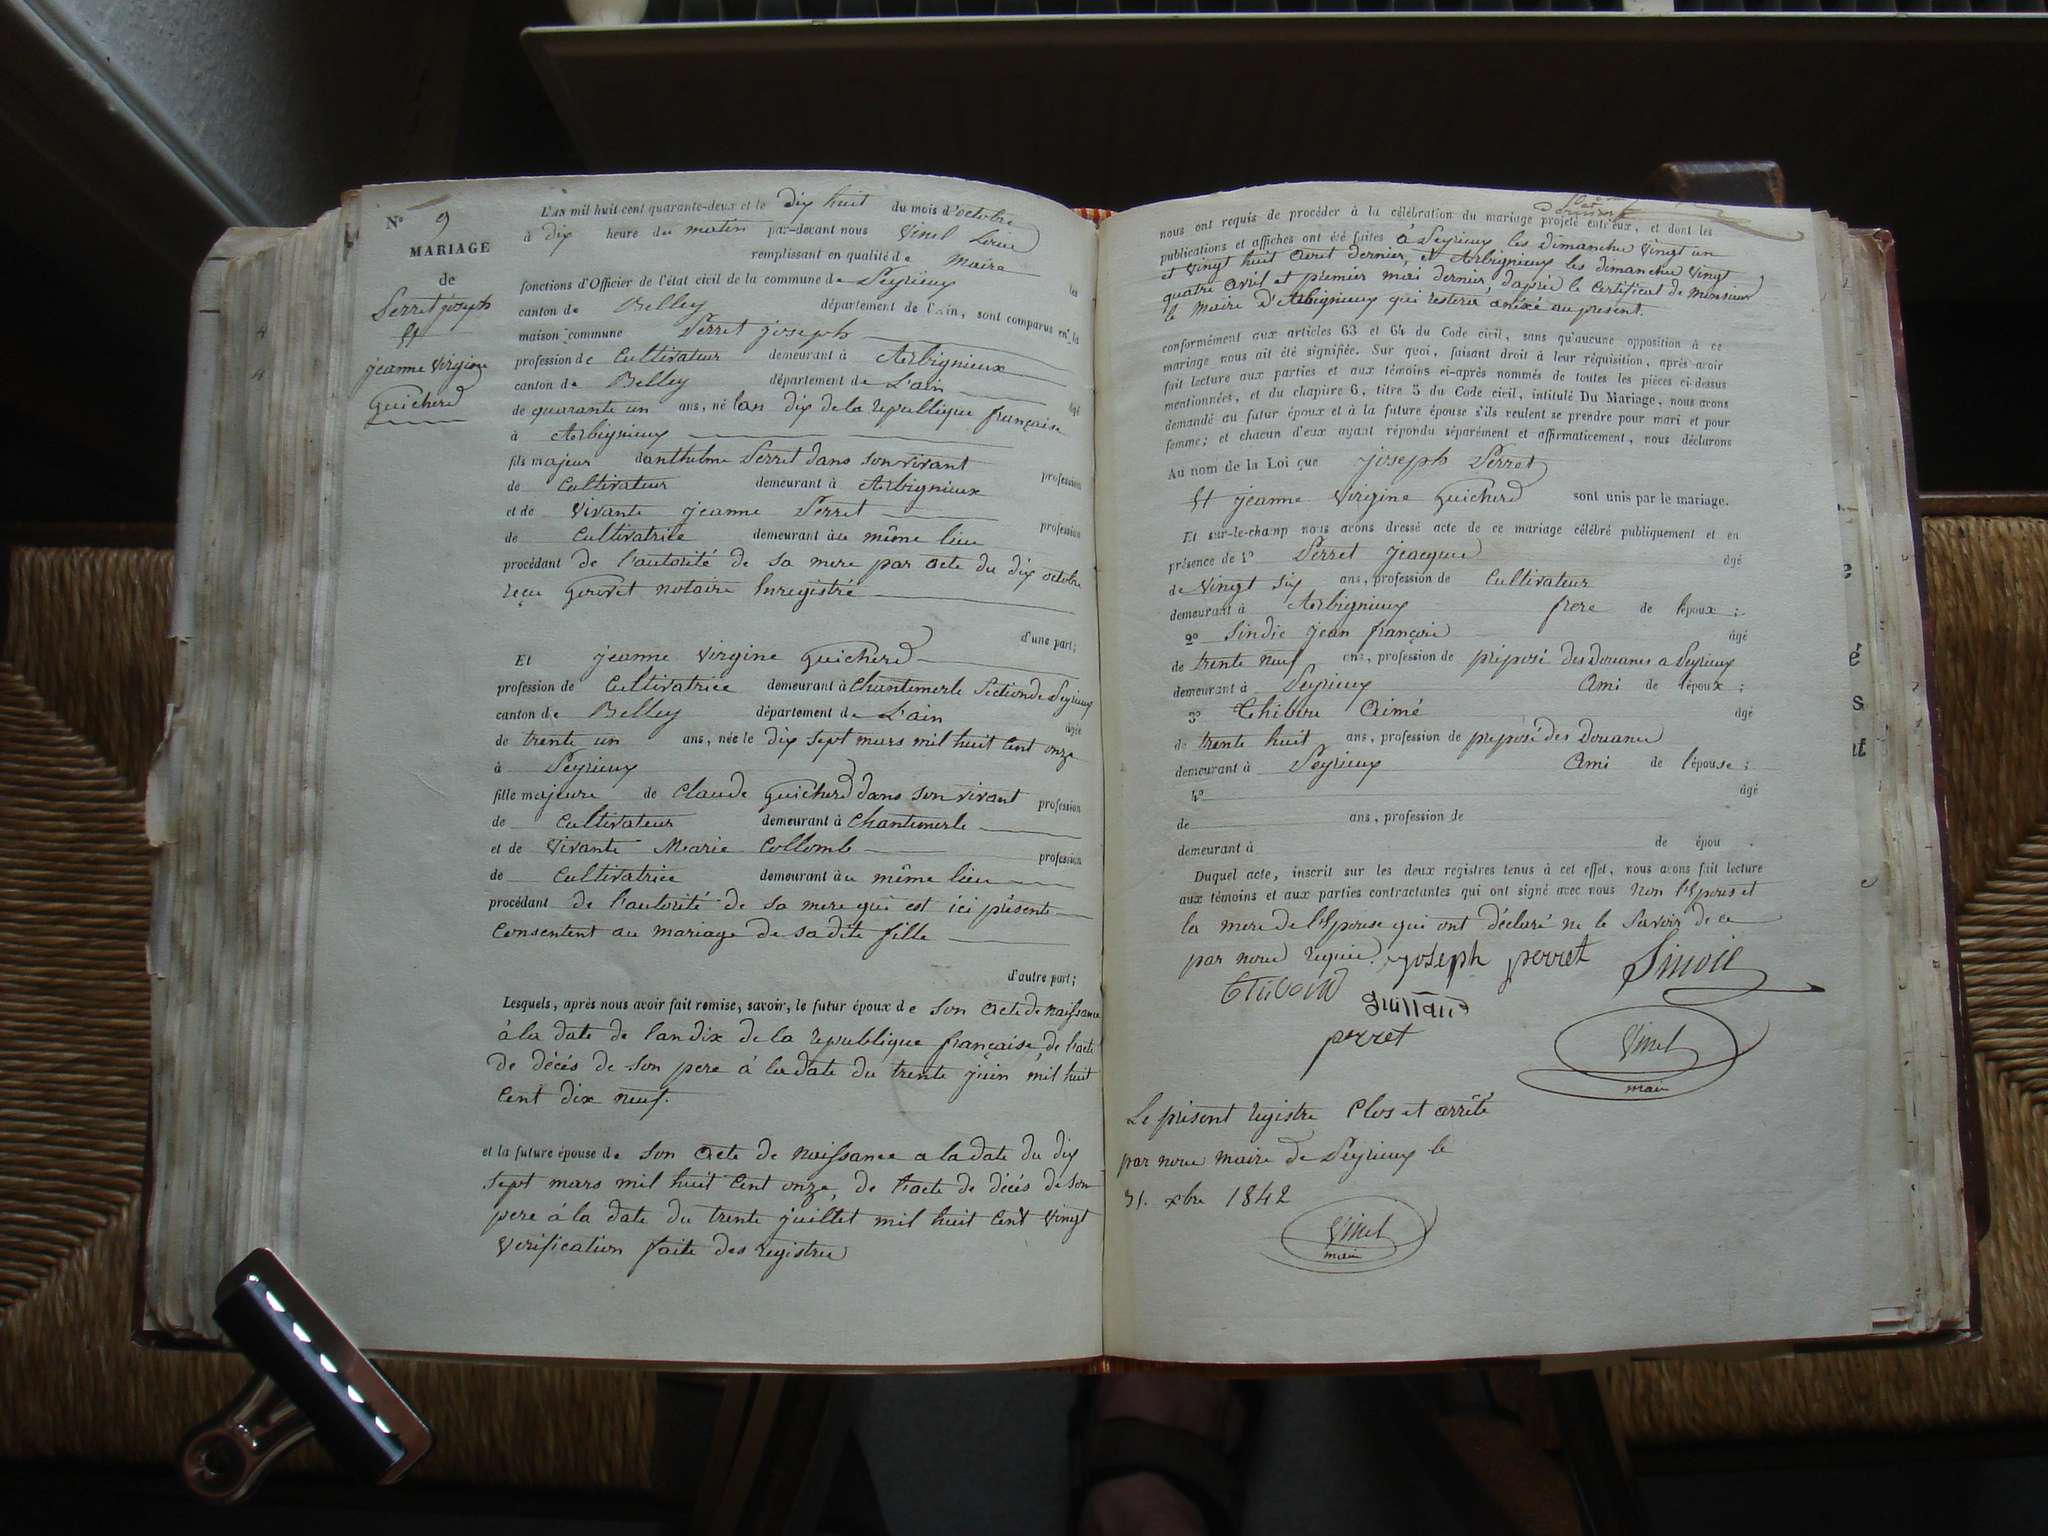 N.o 9
MARIAGE
de
Perret joseph
Et
jeanne Virgine
Guicherd
L'AN mil huit cent quarante-deux et le dix huit du mois d'octobre
à dix heure du matin par-devant nous Vinel
remplissant en qualité de Maire les
fonctions d'Officier de l'état civil de la commune de Peyrieux
canton de Belley département de l'ain, sont comparus en la
maison commune Perret joseph
profession de Cultivateur demeurant à Arbignieux
canton de Belley département de L'ain âgé
de quarante un ans, né lan dix de la republique française
à Arbignieux
fils majeur danthelme Perret dans son vivant profession
de Cultivateur demeurant à Arbignieux
et de Vivante jeanne Perret profession
de Cultivatrice demeurant àu même lieu
procédant de l'autorité de sa mere par acte du dix octobre
reçu notaire Enregistré
d'une part;
Et jeanne Virgine Guicherd
profession de Cultivatrice demeurant à Chantemerle Section de Peyrieux
canton de Belley département de L'ain âgée
de trente un ans, née le dix sept mars mil huit Cent onze
à Peyrieux
fille majeure de Claude Guicherd dans son vivant profession
de Cultivateur demeurant à Chantemerle
et de Vivante Marie Collomb profession
de Cultivatrice demeurant àu même lieu
procédant de l'autorité de sa mere qui est ici présente
Consentent au mariage de sa dite fille
d'autre part;
Lesquels, après nous avoir fait remise, savoir, le futur époux de son Acte de naissance
à la date de lan dix de la republique française, de l'acte
de décés de son pere à la date du trente juin mil huit
Cent dix neuf.
et la future épouse de son Acte de naissance a la date du dix
sept mars mil huit Cent onze, de l'acte de décés de son
pere à la date du trente juillet mil huit Cent Vingt
Verification faite des registres
nous ont requis de procéder à la célébration du mariage projeté entr'eux, et dont les
publications et affiches ont été faites à Peyrieux les dimanches vingt un
et vingt huit Avril dernier, et Arbignieux les dimanches vingt
quatre avril et premier mai dernier, daprès le Certificat de Monsieur
le Maire D'Arbignieux qui restera anéxé au present.
conformément aux articles 63 et 64 du Code civil, sans qu'aucune opposition à ce
mariage nous ait été signifiée. Sur quoi, faisant droit à leur réquisition, après avoir
fait lecture aux parties et aux témoins ci-après nommés de toutes les pièces ci-dessus
mentionnées, et du chapire 6, titre 5 du Code civil, intitulé Du Mariage, nous avons
demandé au futur époux et à la future épouse s'ils veulent se prendre pour mari et pour
femme; et chacun d'eux ayant répondu séparément et affirmaticement, nous déclarons
Au nom de la Loi que joseph Perret
Et jeanne Virgine Guicherd sont unis par le mariage.
Et sur-le-champ nous acons dressé acte de ce mariage célébré publiquement et en
présence de 1° Perret jacques âgé
de Vingt six ans, profession de Cultivateur
demeurant à Arbignieux frere de l'époux;
2° Sindic jean françois âgé
de trente neuf ans, profession de préposé des Douanes a Peyrieux
demeurant à Peyrieux Ami de l'époux;
3° Aimé âgé
de trente huit ans, profession de préposé des Douanes
demeurant à Peyrieux Ami de l'épouse;
4° âgé
de ans, profession de
demeurant à de épou .
Duquel acte, inscrit sur les deux registres tenus à cet effet, nous avons fait lecture
aux témoins et aux parties contractantes qui ont signé avec nous non l'Epouse et
la mere de l'Epouse qui ont déclaré ne le savoir de ce
par nous requis. joseph perret
perret
Vinel
maire
Le présent registre Clos et arrêté
par nous Maire de Peyrieux le
31. xbre 1842
Vinel
maire